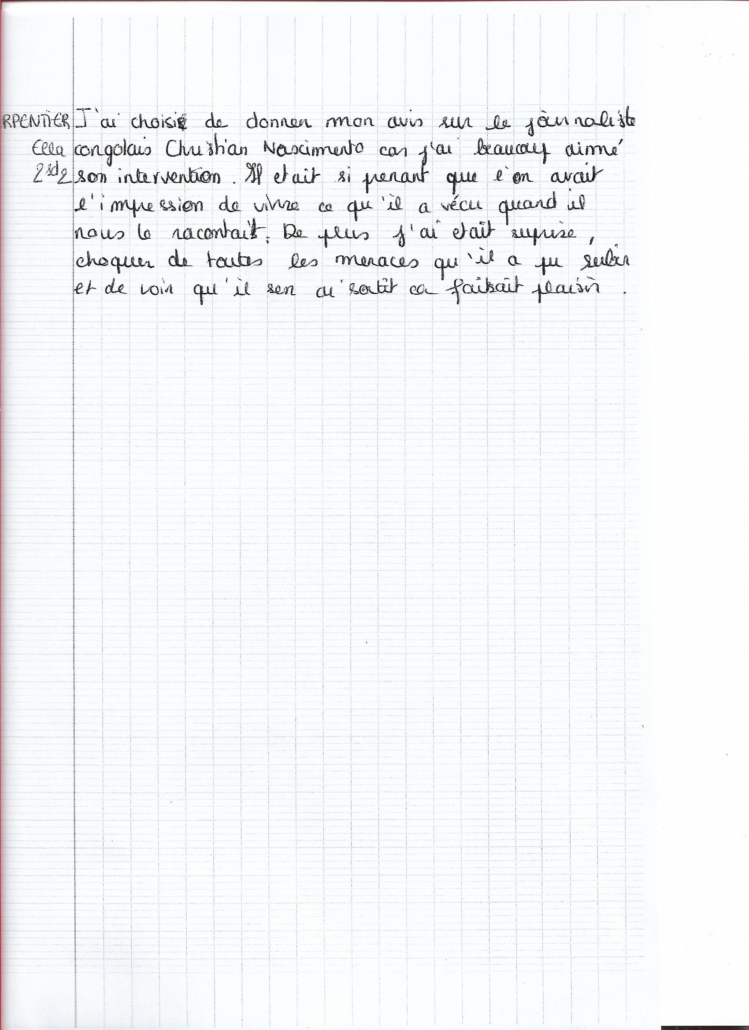 RPENTIER J'ai choisie de donner mon avis sur le journaliste
Ella congolais Christian Nascimento car j'ai beaucoup aimé
2nd2 son intervention. Il etait si prenant que l'on avait
l'impression de vivre ce qu'il a vécu quand il
nous le racontait. De plus j'ai etait suprise,
choquer de toutes les menaces qu'il a pu subir
et de voir qu'il sen ai sortit ca faisait plaisir.